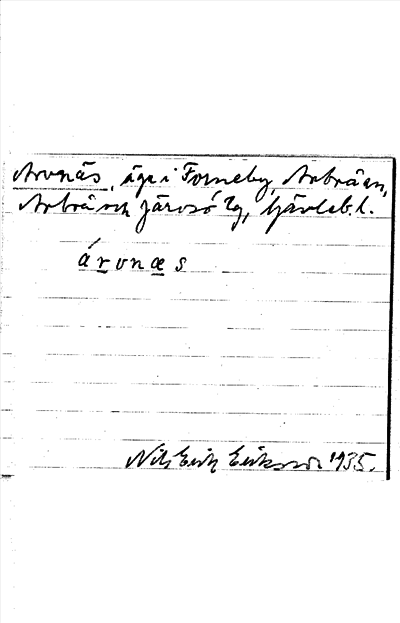 Arvnäs, äga i Forneby, Arbrå sn,
Arbrå och Järvsö tg, Gävleb. l.
árvnæs
Nils Erik Eriksson 1935.